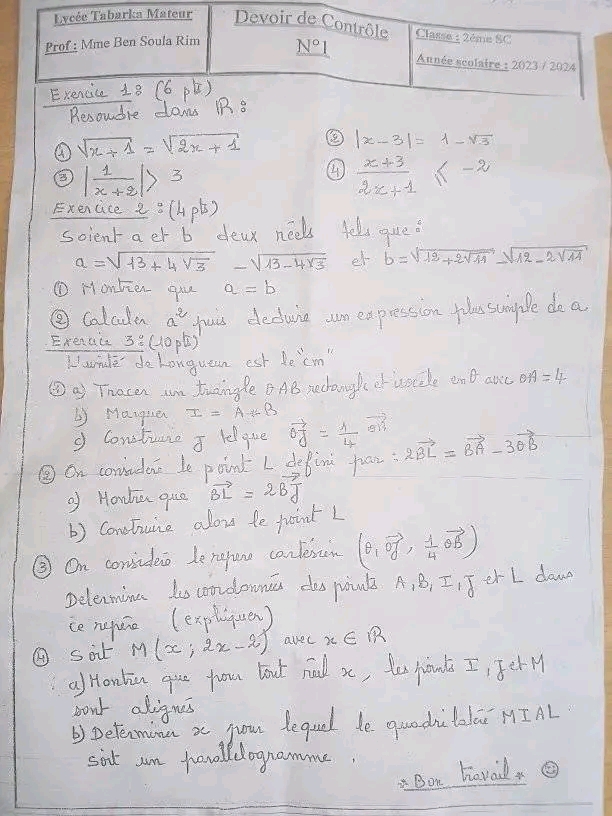 Lycée Tabarka Mateur
Prof : Mme Ben Soula Rim
Devoir de Contrôle
N°1
Classe : 2éme SC
Année scolaire : 2023 / 2024
Exercice 1 : (6 pts)
Resoudre dans ℝ :
① √(x+1) = √(2x+1)
② |x-3| = 1-√3
③ |1/(x+2)| > 3
④ (x+3)/(2x+1) ⩽ -2
Exercice 2 : (4 pts)
Soient a et b deux réels tels que :
a = √(13+4√3) - √(13-4√3) et b = √(12+2√11) - √(12-2√11)
① Montrer que a = b
② Calculer a² puis deduire un expression plus simple de a
Exercice 3 : (10 pts)
L'unité de Longueur est le "cm"
① a) Tracer un triangle OAB rectangle et isocéle en O avec OA = 4
b) Marquer I = A * B
c) Construire J tel que OJ⃗ = 1/4 OB⃗
② On considére le point L defini par : 2BL⃗ = BA⃗ - 3OB⃗
a) Montrer que BL⃗ = 2BJ⃗
b) Construire alors le point L
③ On considére le repere cartésien (O, OJ⃗, 1/4 OB⃗)
Determiner les coordonnées des points A, B, I, J et L dans
ce repére (expliquer)
④ Soit M(x ; 2x-2) avec x ∈ ℝ
a) Montrer que pour tout réel x, les points I, J et M
sont alignés
b) Determiner x pour lequel le quadrilatére MIAL
soit un parallelogramme.
* Bon travail * ☺